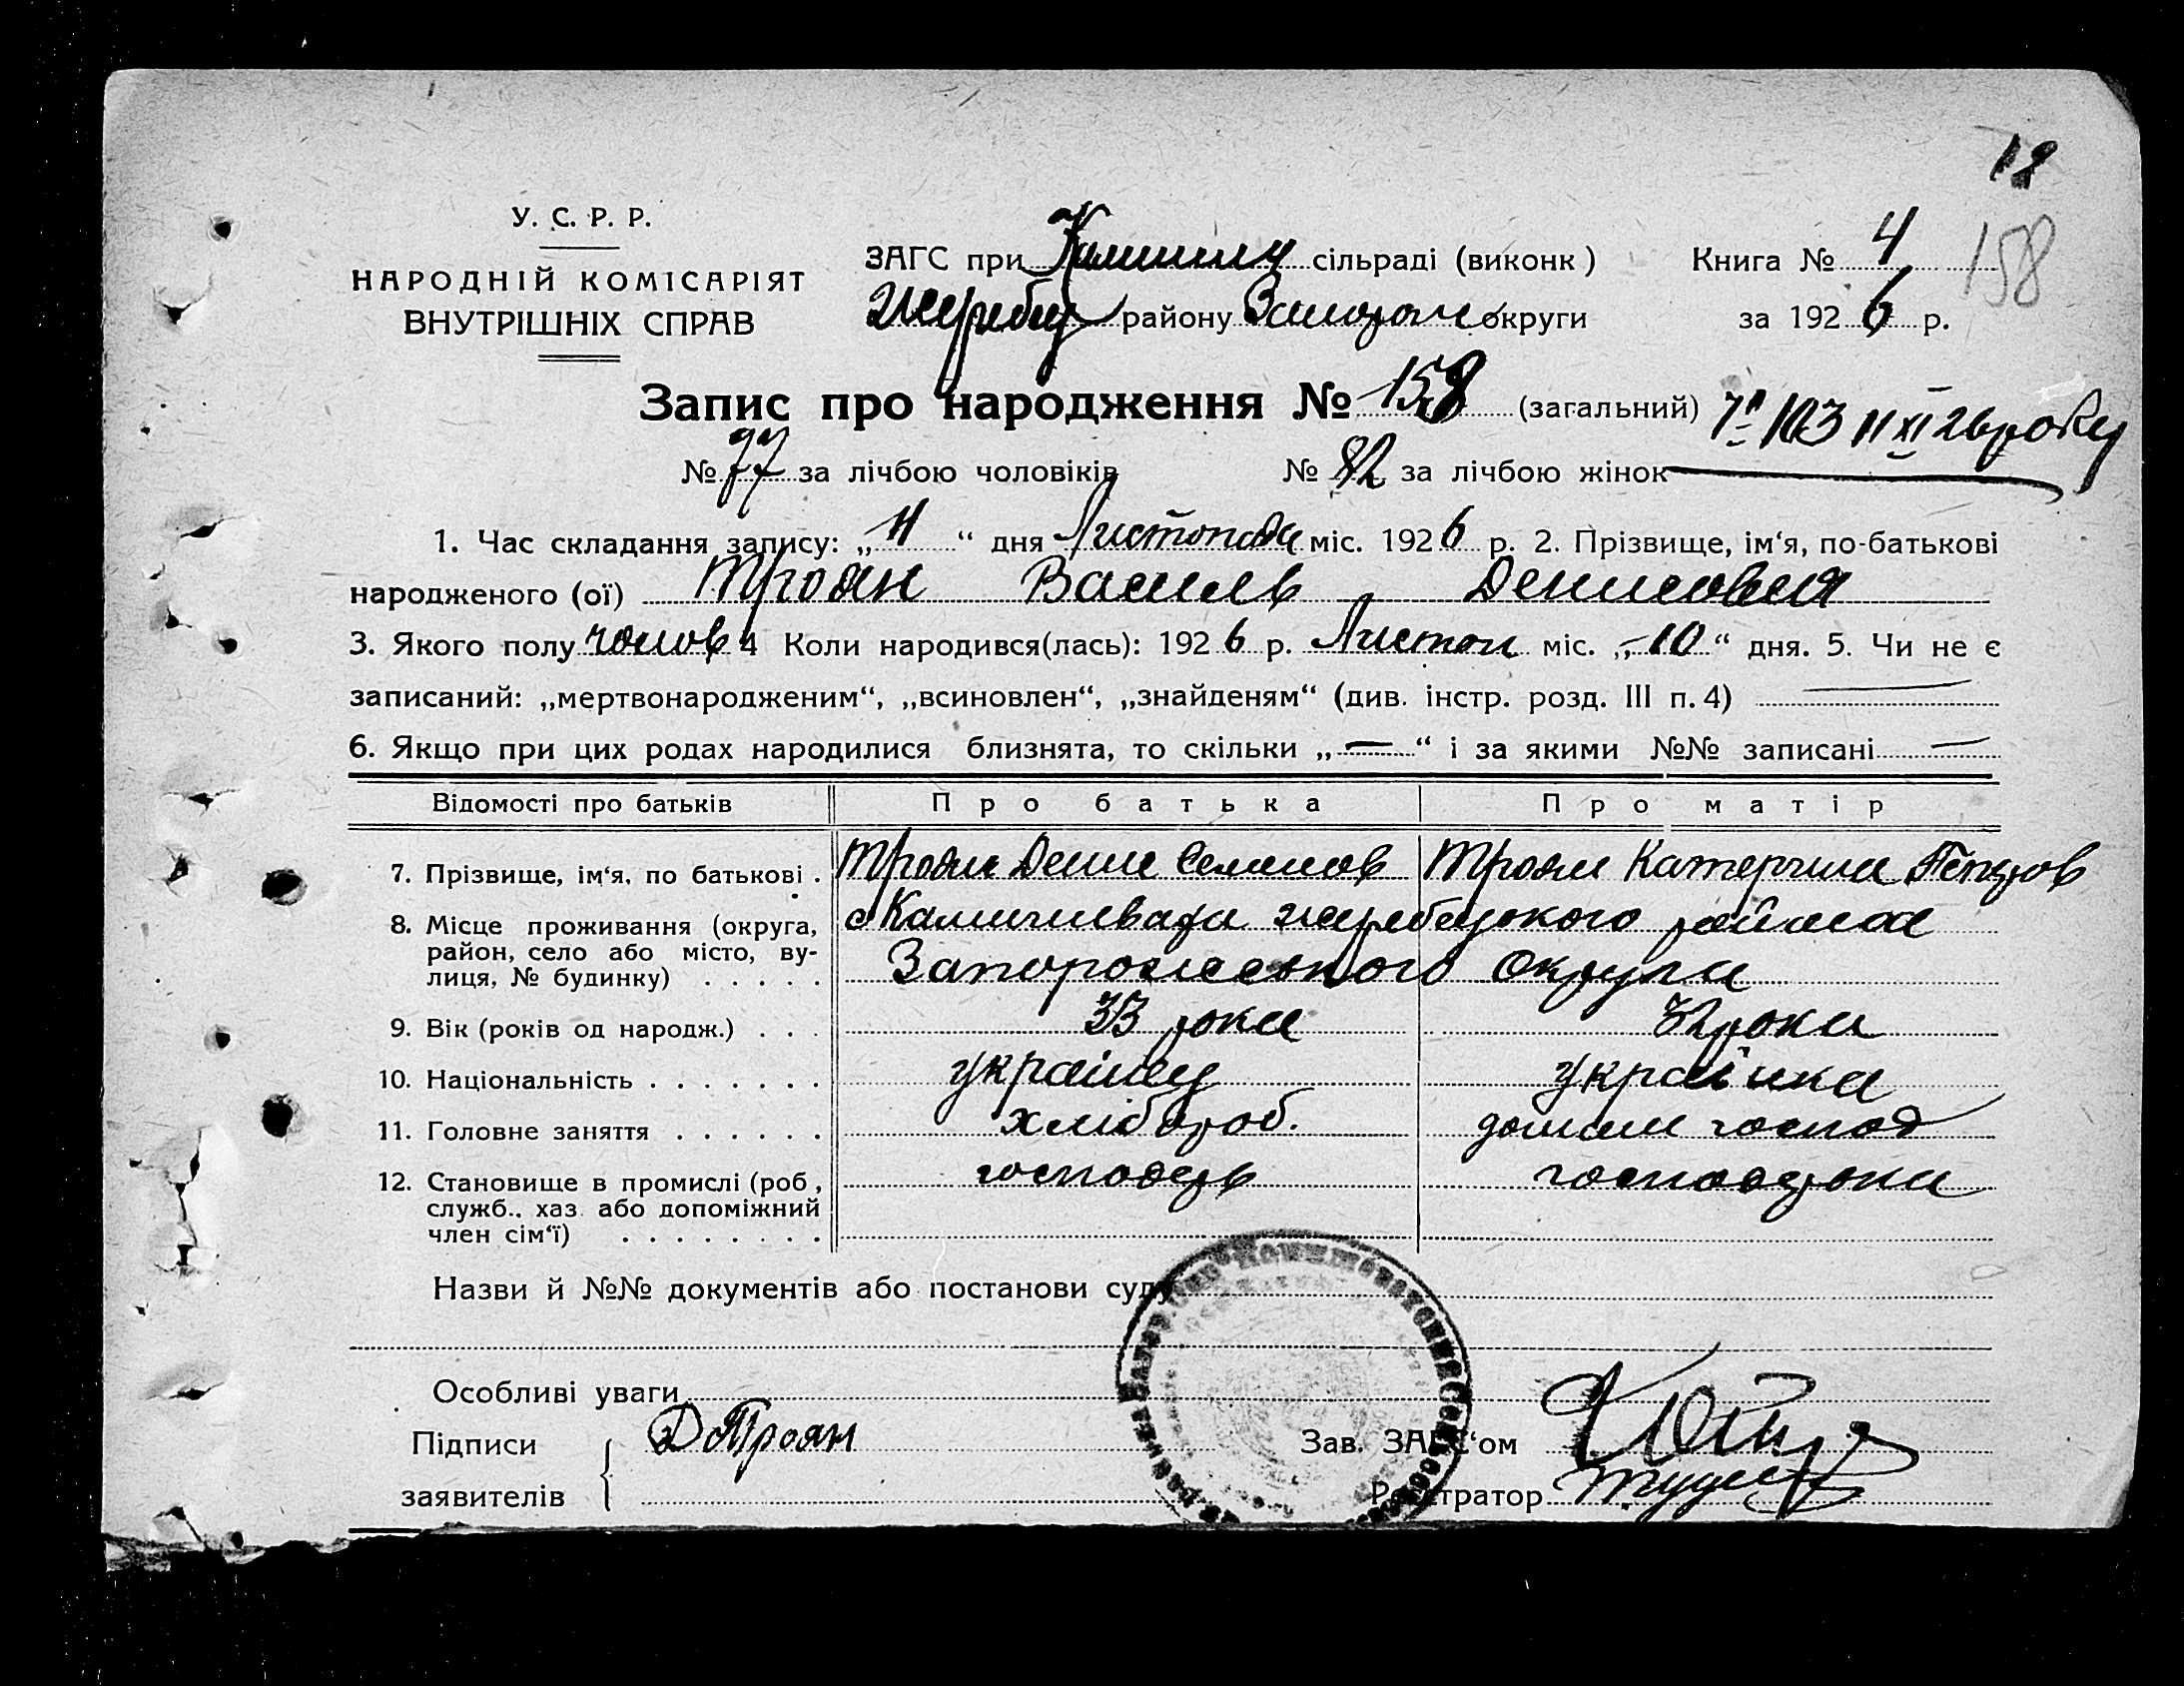 18
У. С. Р. Р.
НАРОДНІЙ КОМІСАРІЯТ
ВНУТРІШНІХ СПРАВ
ЗАГС при сільраді (виконк)
Жеребц району Запорож округи
Книга № 4 158
за 1926 р.
Запис про народження № 158 (загальний)
103 11 XI 26 року
№ 77 за лічбою чоловіків № 82 за лічбою жінок
1. Час складання запису: „ 11 “ дня Листопада міс. 1926 р. 2. Прізвище, ім‘я, по-батькові
народженого (ої) Троян Василь Денисович
3. Якого полу чолов 4 Коли народився(лась): 1926 р. Листоп міс. „ 10 “ дня. 5. Чи не є
записаний: „мертвонародженим“, „всиновлен“, „знайденям“ (див. інстр. розд. III п. 4) —
6. Якщо при цих родах народилися близнята, то скільки „ — “ і за якими №№ записані —
Відомості про батьків Про батька Про матір
7. Прізвище, ім‘я, по батькові . Троян Денис Семенов Троян Катерина Петров
8. Місце проживання (округа,
район, село або місто, ву-
лиця, № будинку) . . . . .
с Камишеваха жеребецького района
Запорожського Округи
9. Вік (років од народж.) . . . 33 роки 32 роки
10. Національність . . . . . . . українец українка
11. Головне заняття . . . . . . хлібороб. домаш господ
12. Становище в промислі (роб,
служб., хаз. або допоміжний
член сім‘ї) . . . . . . . .
господарь господарка
Назви й №№ документів або постанови суду
Особливі уваги
Підписи
заявителів
Д Троян
Зав. ЗАГС‘ом
Реєстратор